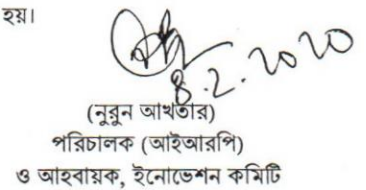 হয়।
8.2.2020
(নুরুন আখতার)
পরিচালক (আইআরপি)
ও আহবায়ক, ইনোভেশন কমিটি